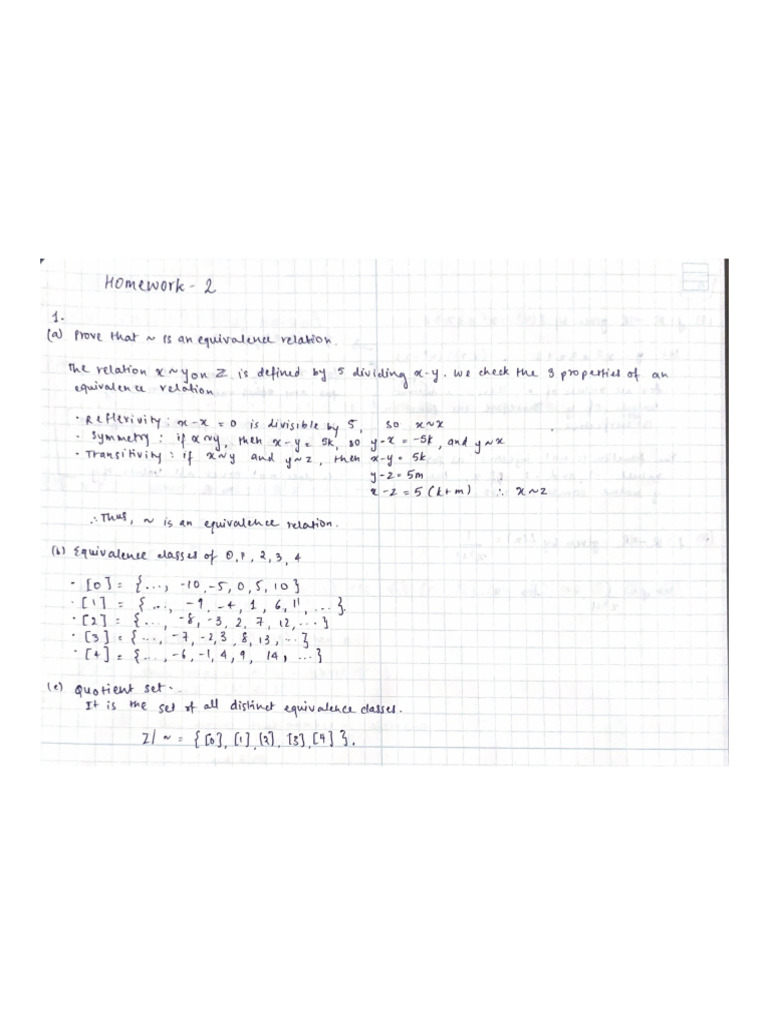 Homework - 2
1.
(a) Prove that ~ is an equivalence relation.
The relation x~y on Z is defined by 5 dividing x-y. We check the 3 properties of an
equivalence relation
· Reflexivity : x-x = 0 is divisible by 5, so x~x
· Symmetry : if x~y, then x-y = 5k, so y-x = -5k, and y~x
· Transitivity : if x~y and y~z, then x-y = 5k
y-z = 5m
x-z = 5(k+m) ∴ x~z
∴ Thus, ~ is an equivalence relation.
(b) Equivalence classes of 0, 1, 2, 3, 4
· [0] = {..., -10, -5, 0, 5, 10}
· [1] = {..., -9, -4, 1, 6, 11, ...}.
· [2] = {..., -8, -3, 2, 7, 12, ...}
· [3] = {..., -7, -2, 3, 8, 13, ...}
· [4] = {..., -6, -1, 4, 9, 14, ...}
(c) Quotient set -.
It is the set of all distinct equivalence classes.
Z/~ = {[0], [1], [2], [3], [4]}.